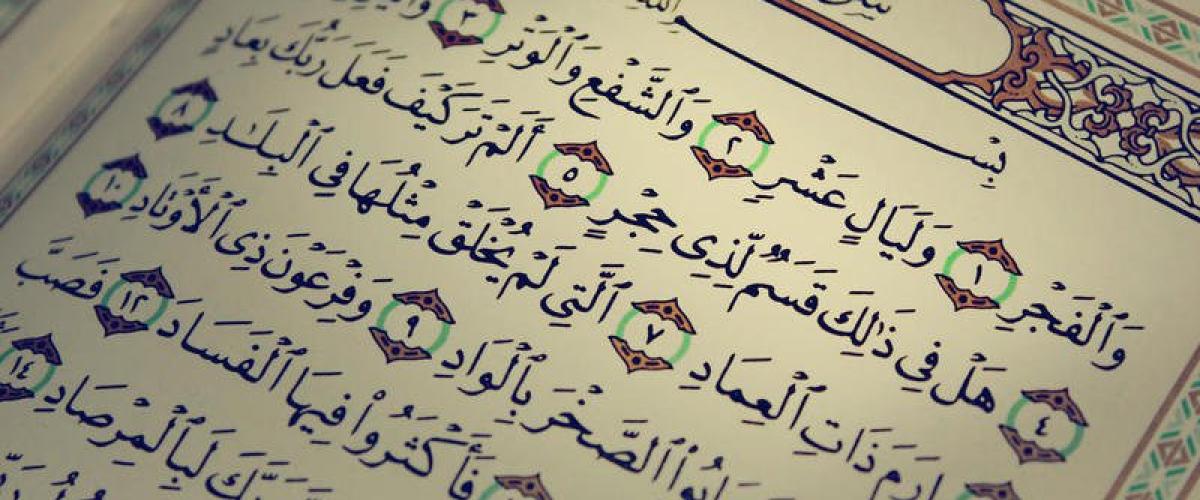 بِسْ
وَٱلْفَجْرِ ١ وَلَيَالٍ عَشْرٍ ٢ وَٱلشَّفْعِ وَٱلْوَتْرِ ٣
٤ هَلْ فِي ذَٰلِكَ قَسَمٌ لِّذِى حِجْرٍ ٥ أَلَمْ تَرَ كَيْفَ فَعَلَ رَبُّكَ بِعَادٍ
إِرَمَ ذَاتِ ٱلْعِمَادِ ٧ ٱلَّتِي لَمْ يُخْلَقْ مِثْلُهَا فِي ٱلْبِلَـٰدِ ٨
ٱلصَّخْرَ بِٱلْوَادِ ٩ وَفِرْعَوْنَ ذِى ٱلْأَوْتَادِ ١٠
فَأَكْثَرُوا۟ فِيهَا ٱلْفَسَادَ ١٢ فَصَبَّ
رَبَّكَ لَبِٱلْمِرْصَادِ ١٤